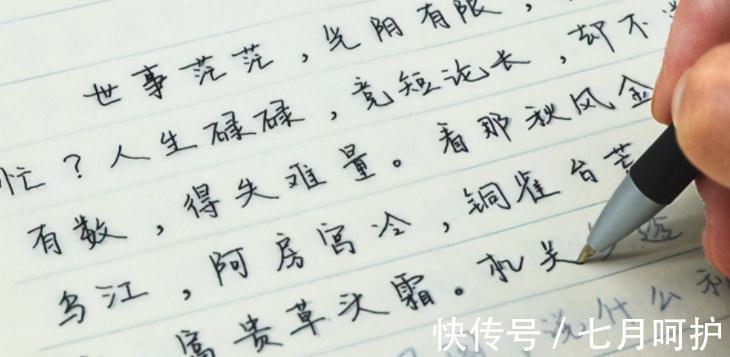 世事茫茫，光阴有限，
忙？人生碌碌，竞短论长，却不
有数，得失难量。看那秋风金
乌江，阿房宫冷，铜雀台荒
富贵草头霜。机关
说什么
快传号 / 七月呵护